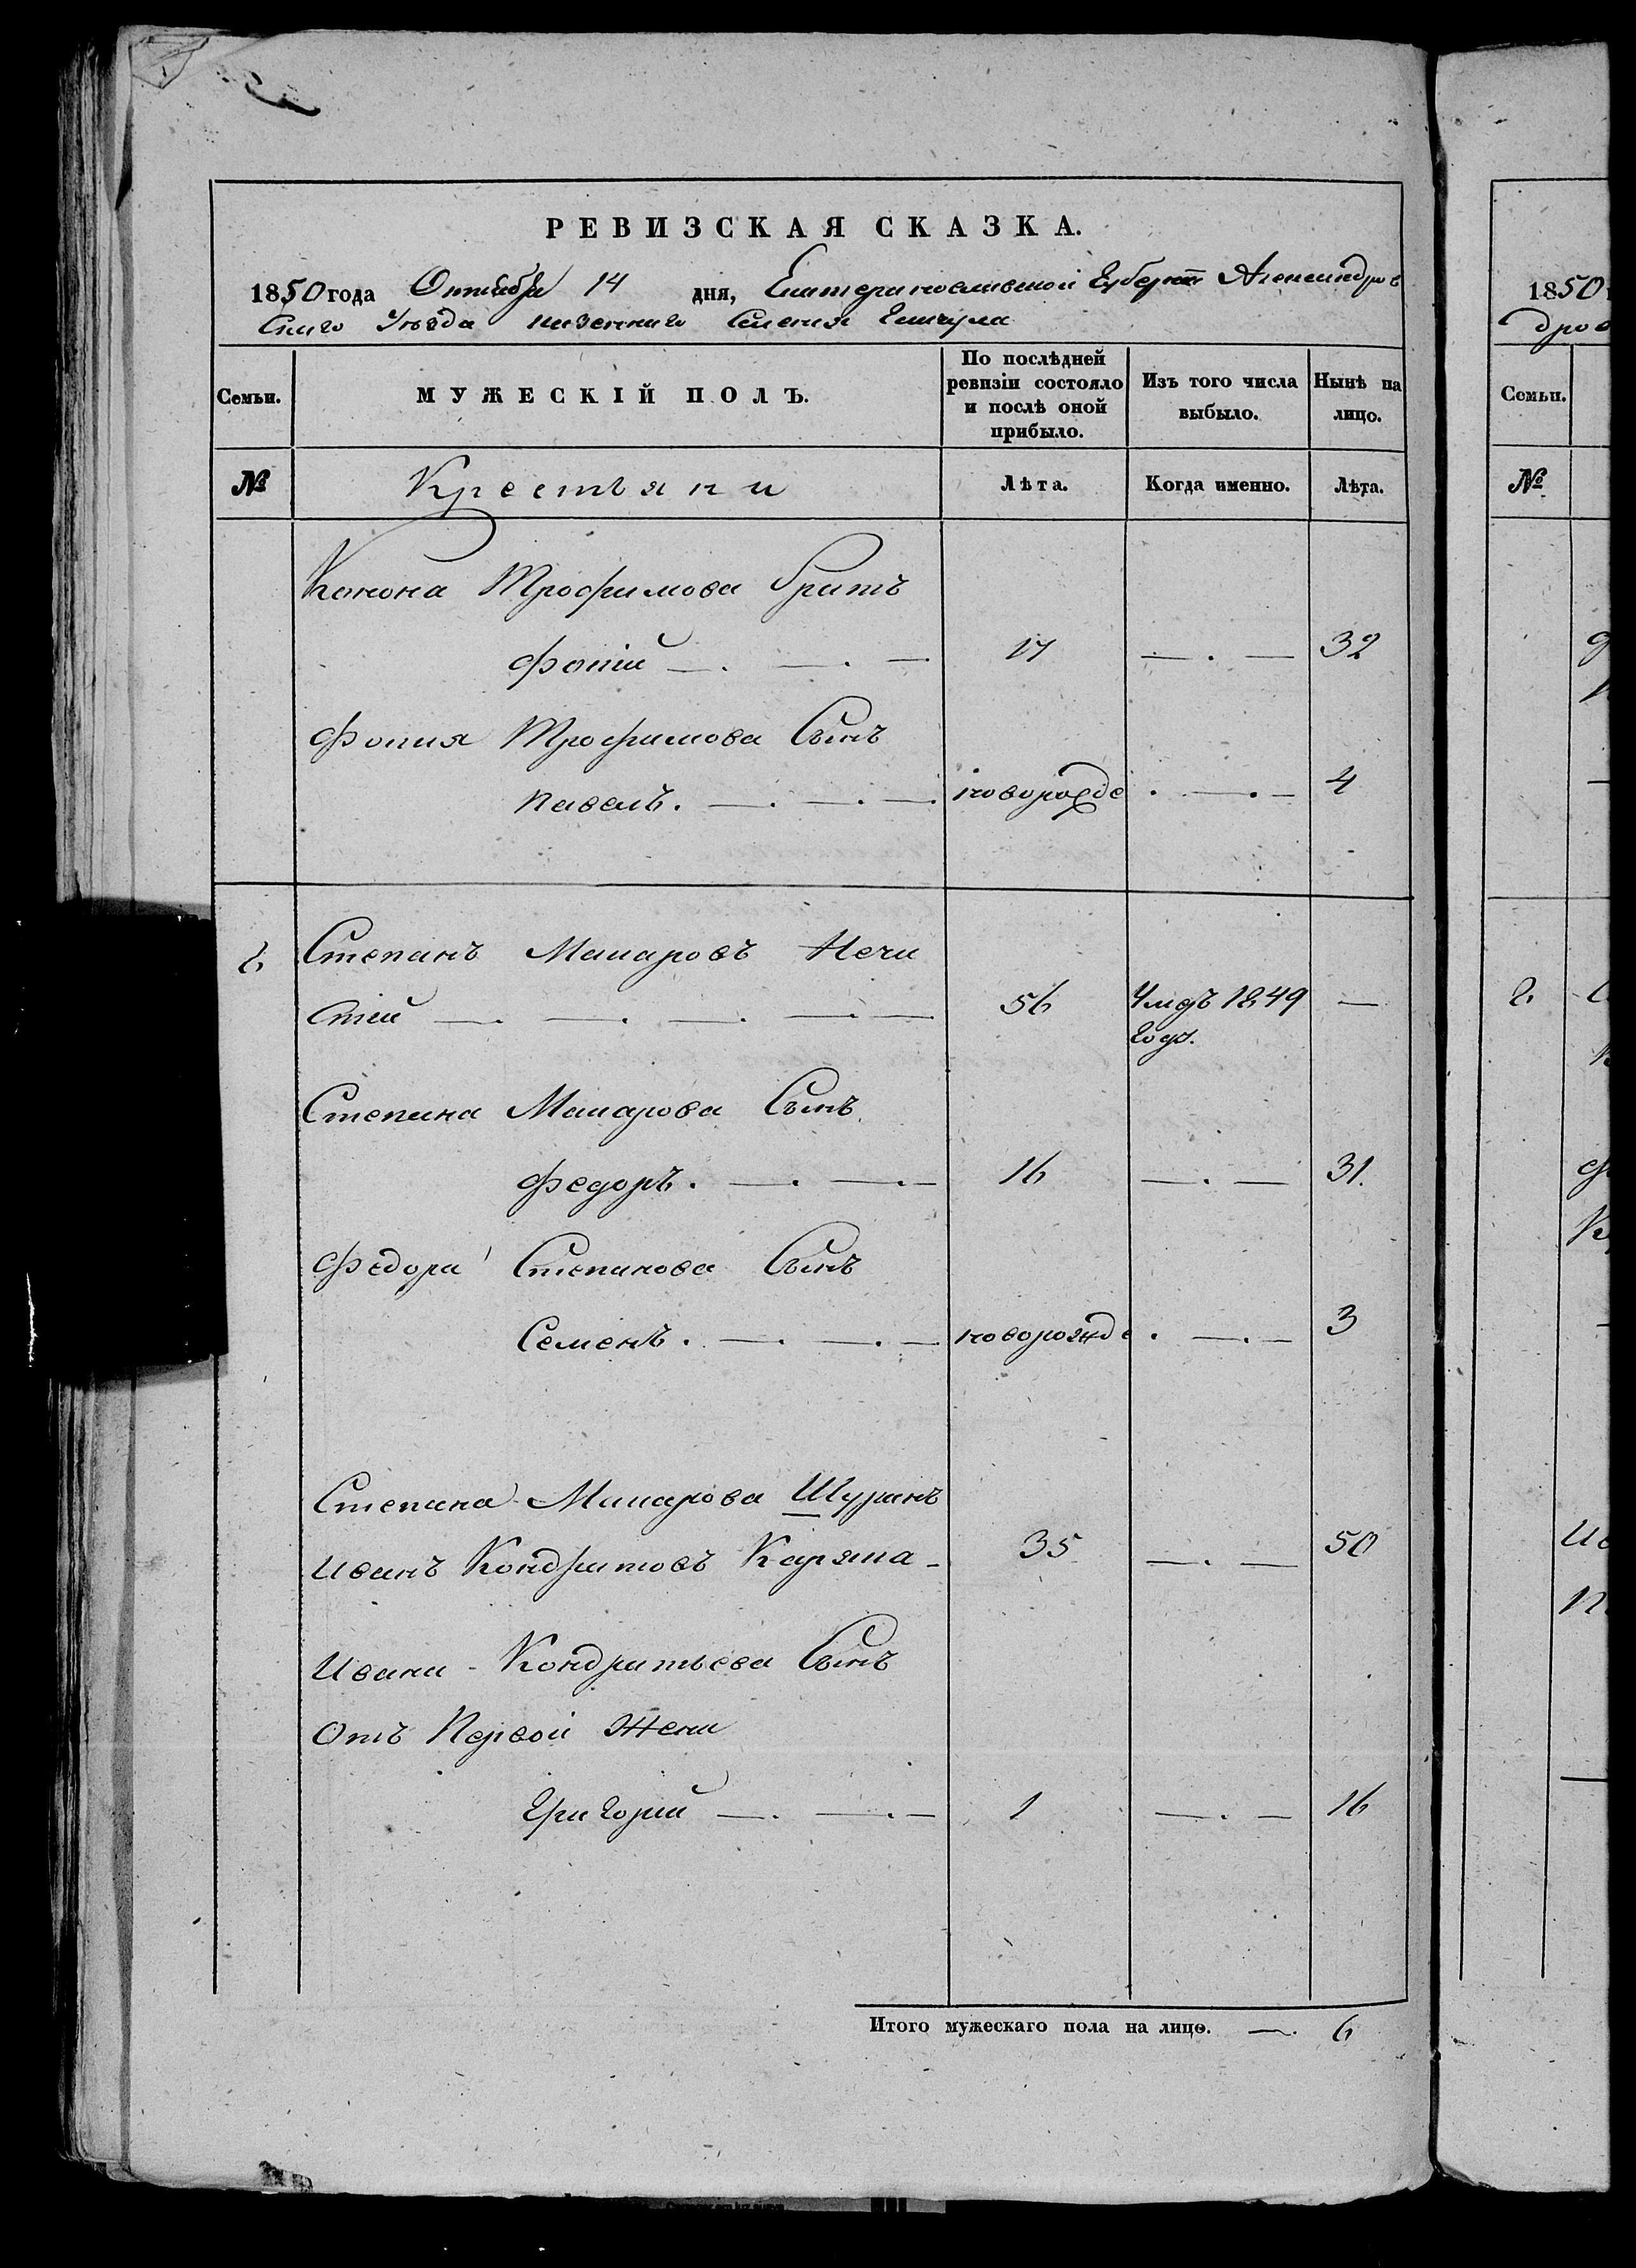 РЕВИЗСКАЯ СКАЗКА.
1850 года Октября 14 дня, Екатеринославской Губерніи Александров
Скаго Уѣзда казеннаго Селенія
Семьи.
МУЖЕСКІЙ ПОЛЪ.
По послѣдней ревизіи состояло и послѣ оной прибыло.
Изъ того числа выбыло.
Нынѣ на лицо.
№ Крестьяни Лѣта. Когда именно. Лѣта.
Конона Трофимова Братъ
Фокій — . — . — 17 — . — 32
Фокия Трофимова Сынъ
Павелъ. — . — . — новорожде . — . — 4
2 Степанъ Макаровъ Нечи
Стій — . — . — . — . — 56 Умеръ 1849 —
году.
Степана Макарова Сынъ
Федоръ. — . — . — 16 — . — 31.
Федора Степанова Сынъ
Семенъ. — . — . — новорожде . — . — 3
Степана Макарова Шуринъ
Иванъ Кондратовъ Каряка - 35 — . — 50
Ивана - Кондратьева Сынъ
Отъ Первой Жени
Григорій — . — . — 1 — . — 16
Итого мужескаго пола на лицо. — . 6
1850
дров
Семьи.
№
2